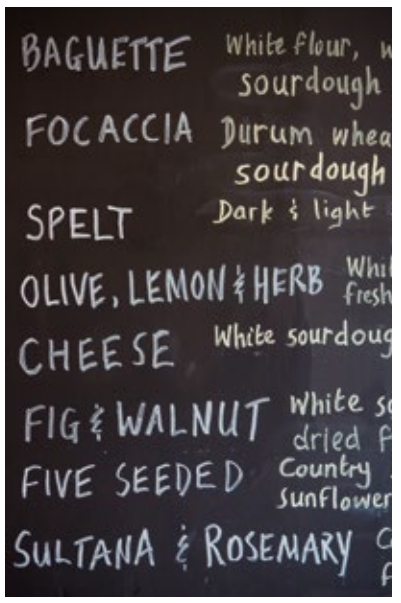 BAGUETTE White flour,
sourdough
FOCACCIA Durum
sourdough
SPELT Dark & light
OLIVE, LEMON & HERB
CHEESE White
FIG & WALNUT White
dried
FIVE SEEDED Country
Sunflower
SULTANA & ROSEMARY